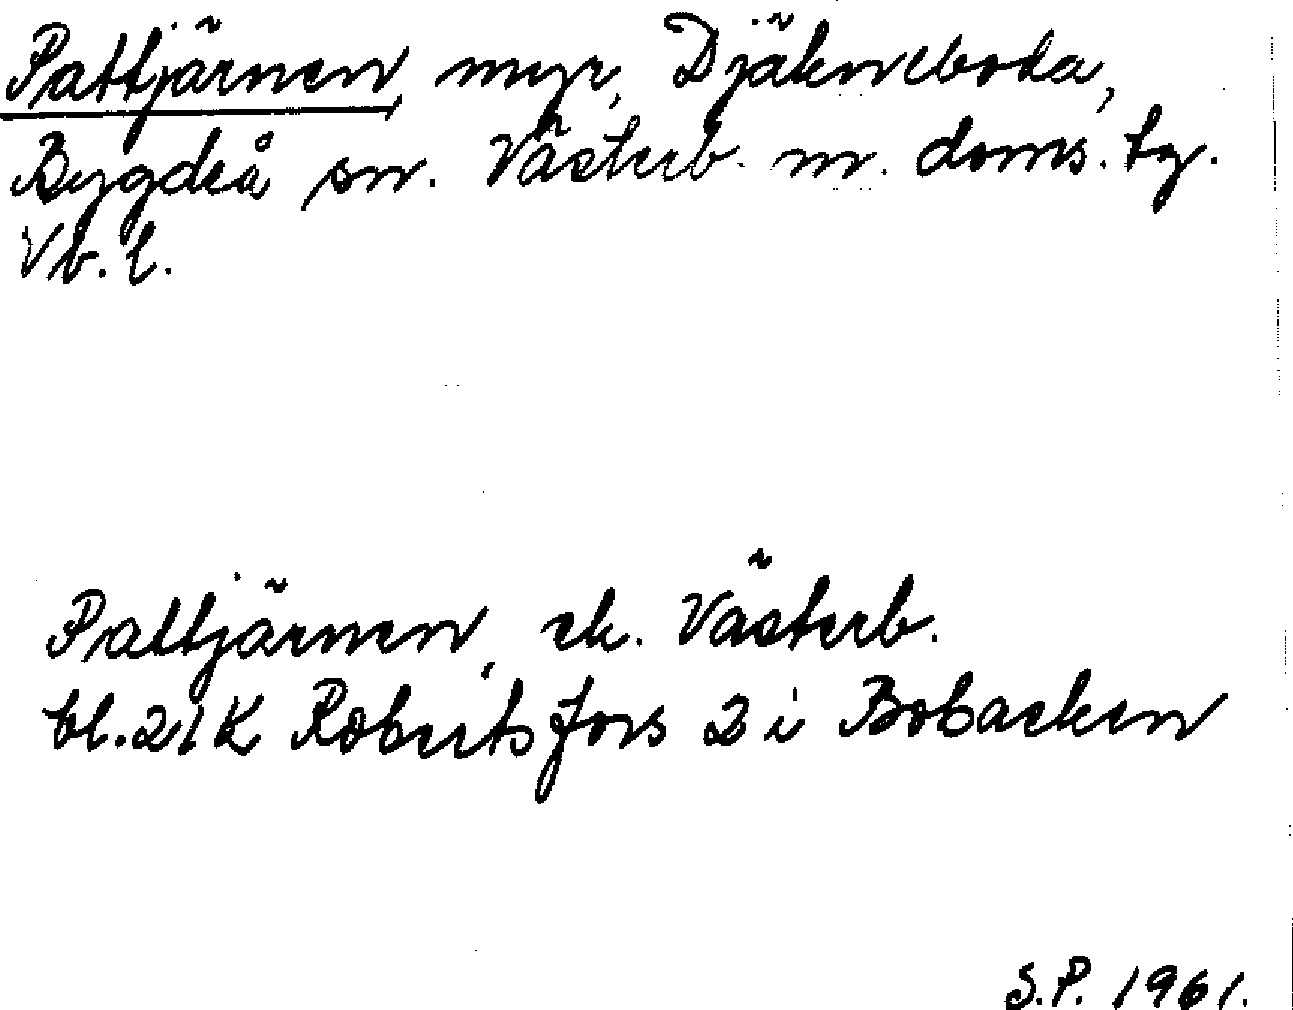 Pattjärnen, myr, Djäkneboda,
Bygdeå sn. Västerb. n. doms. tg.
Vb. l.
Pattjärnen, ek. Västerb.
bl. 21K Robertsfors 2 i Bobacken
S.P. 1961.